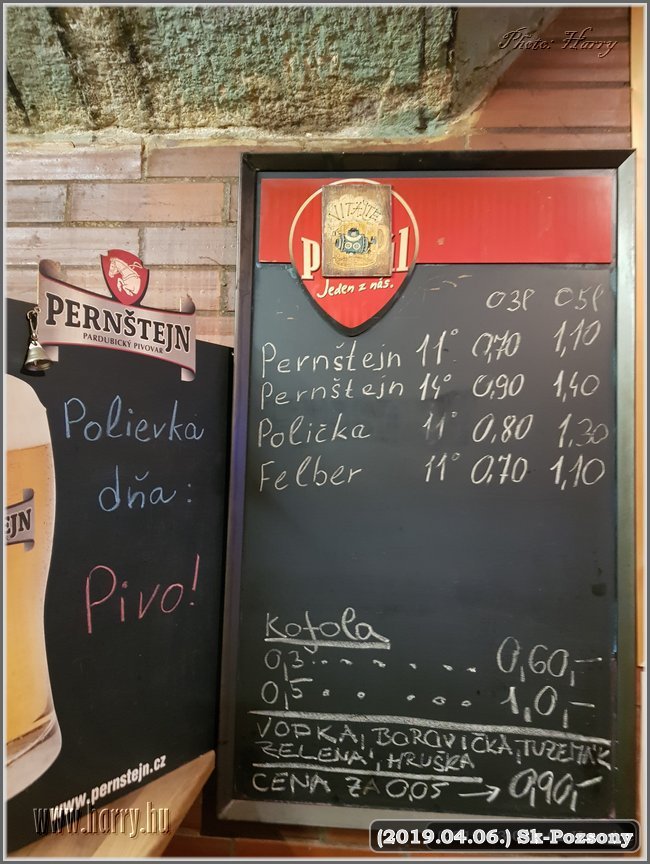 Photo: Harry
VITAJTE
Jeden z nás.
PERNŠTEJN
PARDUBICKÝ PIVOVAR
Polievka
dňa:
Pivo!
www.pernstejn.cz
0,3l 0,5l
Pernštejn 11° 0,70 1,10
Pernštejn 14° 0,90 1,40
Polička 11° 0,80 1,30
Felber 11° 0,70 1,10
Kofola
0,3 . . . . . . . 0,60,-
0,5 . . . . . . 1,0,-
VODKA, BOROVIČKA, TUZEMÁK
ZELENÁ, HRUŠKA
CENA ZA 0,05 → 0,90,-
www.harry.hu
(2019.04.06.) Sk-Pozsony